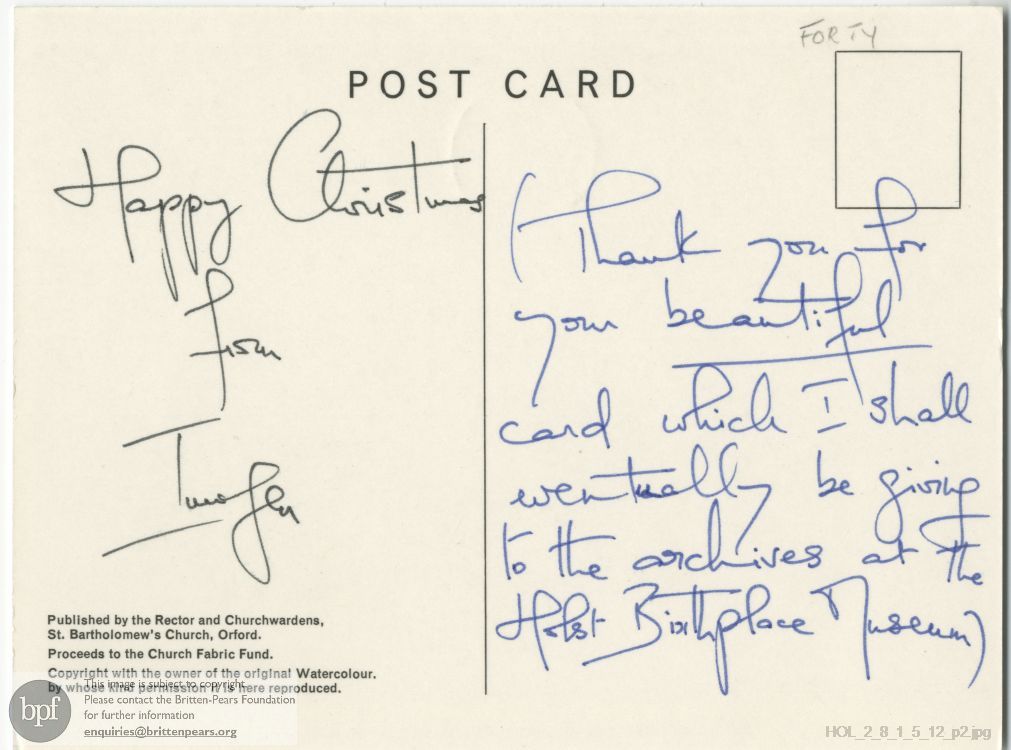 FORTY
POST CARD
Happy Christmas
from
Imogen
(Thank you for
your beautiful
card which I shall
eventually be giving
to the archives at the
Holst Birthplace Museum)
Published by the Rector and Churchwardens,
St. Bartholomew's Church, Orford.
Proceeds to the Church Fabric Fund.
Copyright with the owner of the original Watercolour.
by whose kind permission it is here reproduced.
bpf
This image is subject to copyright.
Please contact the Britten-Pears Foundation
for further information
enquiries@brittenpears.org
HOL_2_8_1_5_12_p2.jpg